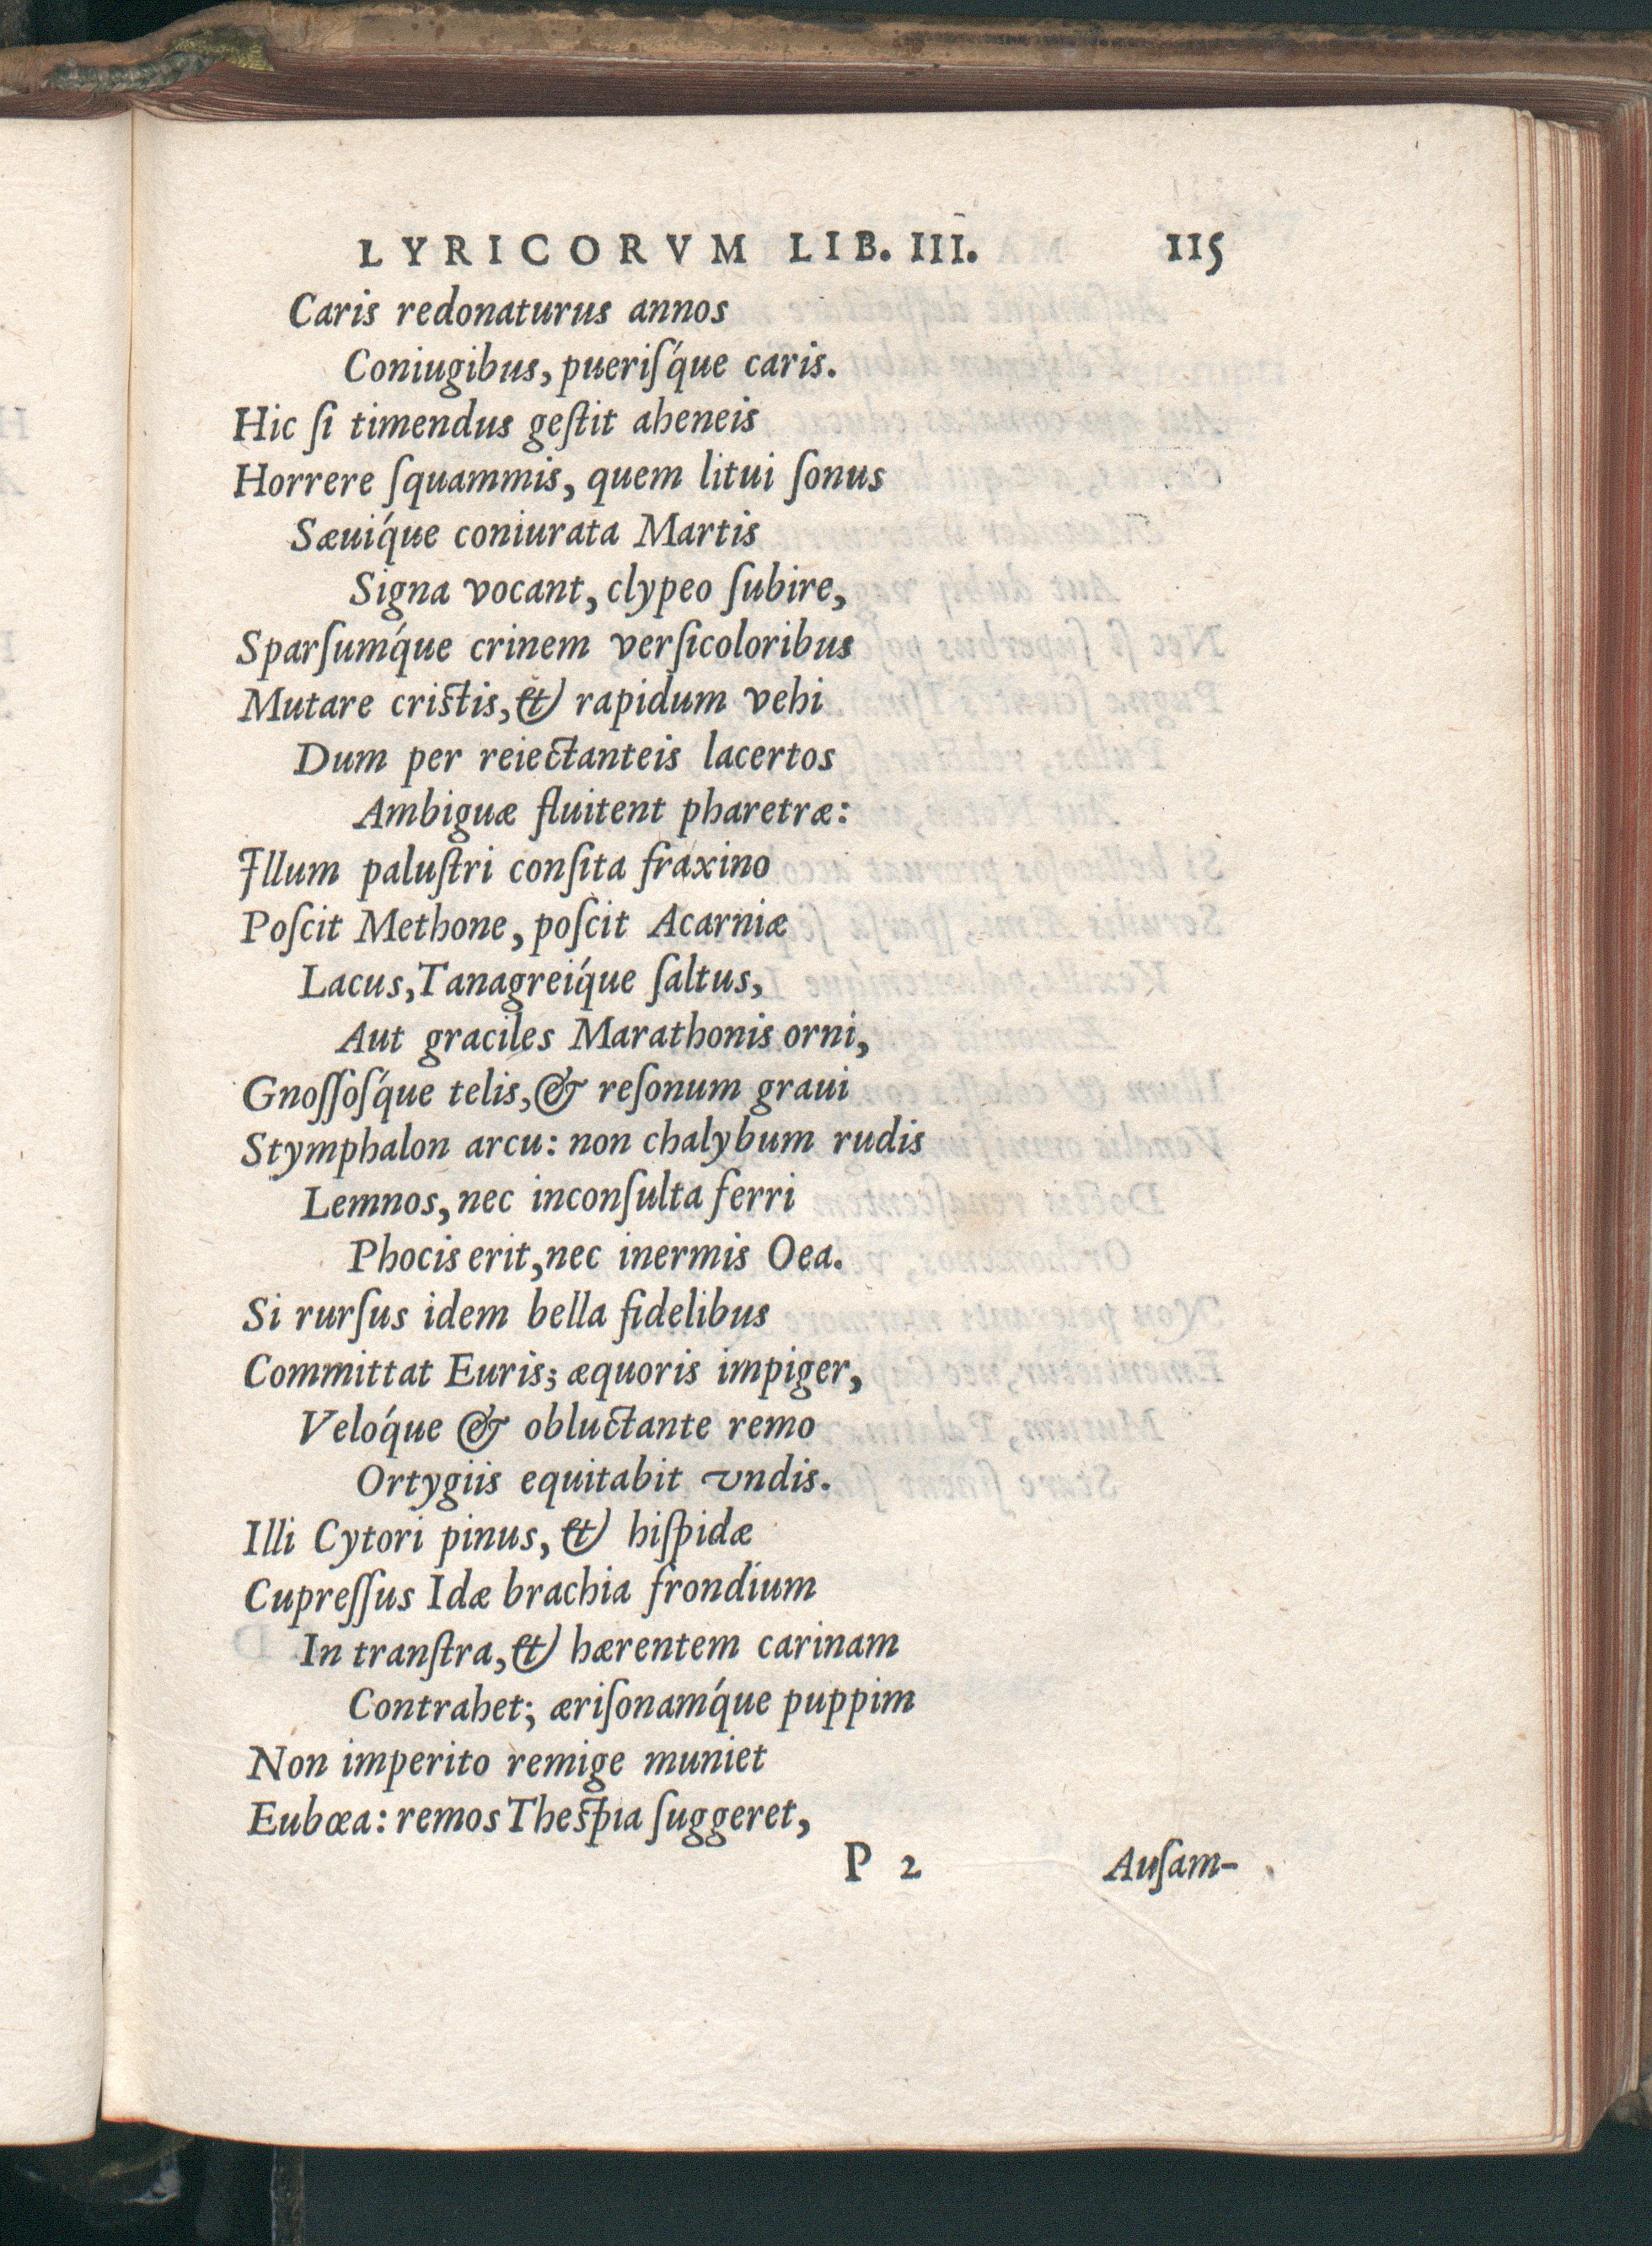 LYRICORVM LIB. III. 115
Caris redonaturus annos
Coniugibus, pueriſq́ue caris.
Hic ſi timendus geſtit aheneis
Horrere ſquammis, quem litui ſonus
Sæuiq́ue coniurata Martis
Signa vocant, clypeo ſubire,
Sparſumq́ue crinem verſicoloribus
Mutare cristis, & rapidum vehi
Dum per reiectanteis lacertos
Ambiguæ fluitent pharetræ:
Illum paluſtri conſita fraxino
Poſcit Methone, poſcit Acarniæ
Lacus, Tanagreiq́ue ſaltus,
Aut graciles Marathonis orni,
Gnoſſoſq́ue telis, & reſonum graui
Stymphalon arcu: non chalybum rudis
Lemnos, nec inconſulta ferri
Phocis erit, nec inermis Oea.
Si rurſus idem bella fidelibus
Committat Euris; æquoris impiger,
Veloq́ue & obluctante remo
Ortygiis equitabit vndis.
Illi Cytori pinus, & hiſpidæ
Cupreſſus Idæ brachia frondium
In tranſtra, & hærentem carinam
Contrahet; æriſonamq́ue puppim
Non imperito remige muniet
Eubœa: remos Thespia ſuggeret,
P 2 Auſam-